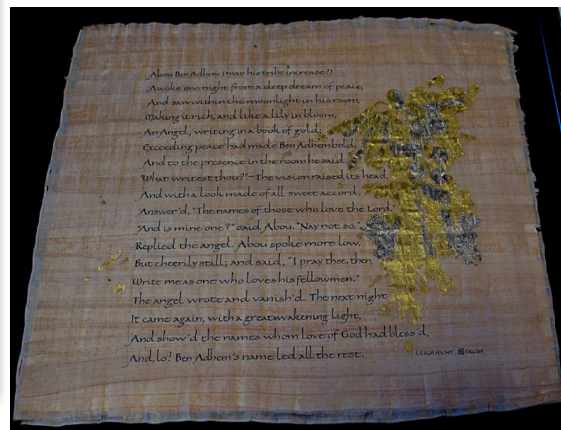 Abou Ben Adhem (may his tribe increase!)
Awoke one night from a deep dream of peace,
And saw within the moonlight in his room,
Making it rich, and like a lily in bloom,
An Angel, writing in a book of gold;
Exceeding peace had made Ben Adhem bold,
And to the presence in the room he said,
"What writest thou?" – The vision raised its head,
And with a look made of all sweet accord,
Answer'd, "The names of those who love the Lord."
"And is mine one?" said Abou. "Nay not so,"
Replied the angel. Abou spoke more low,
But cheerily still; and said, "I pray thee, then,
Write me as one who loves his fellowmen."
The angel wrote and vanish'd. The next night
It came again, with a great wakening light,
And show'd the names whom love of God had bless'd,
And, lo! Ben Adhem's name led all the rest.
LEIGH HUNT